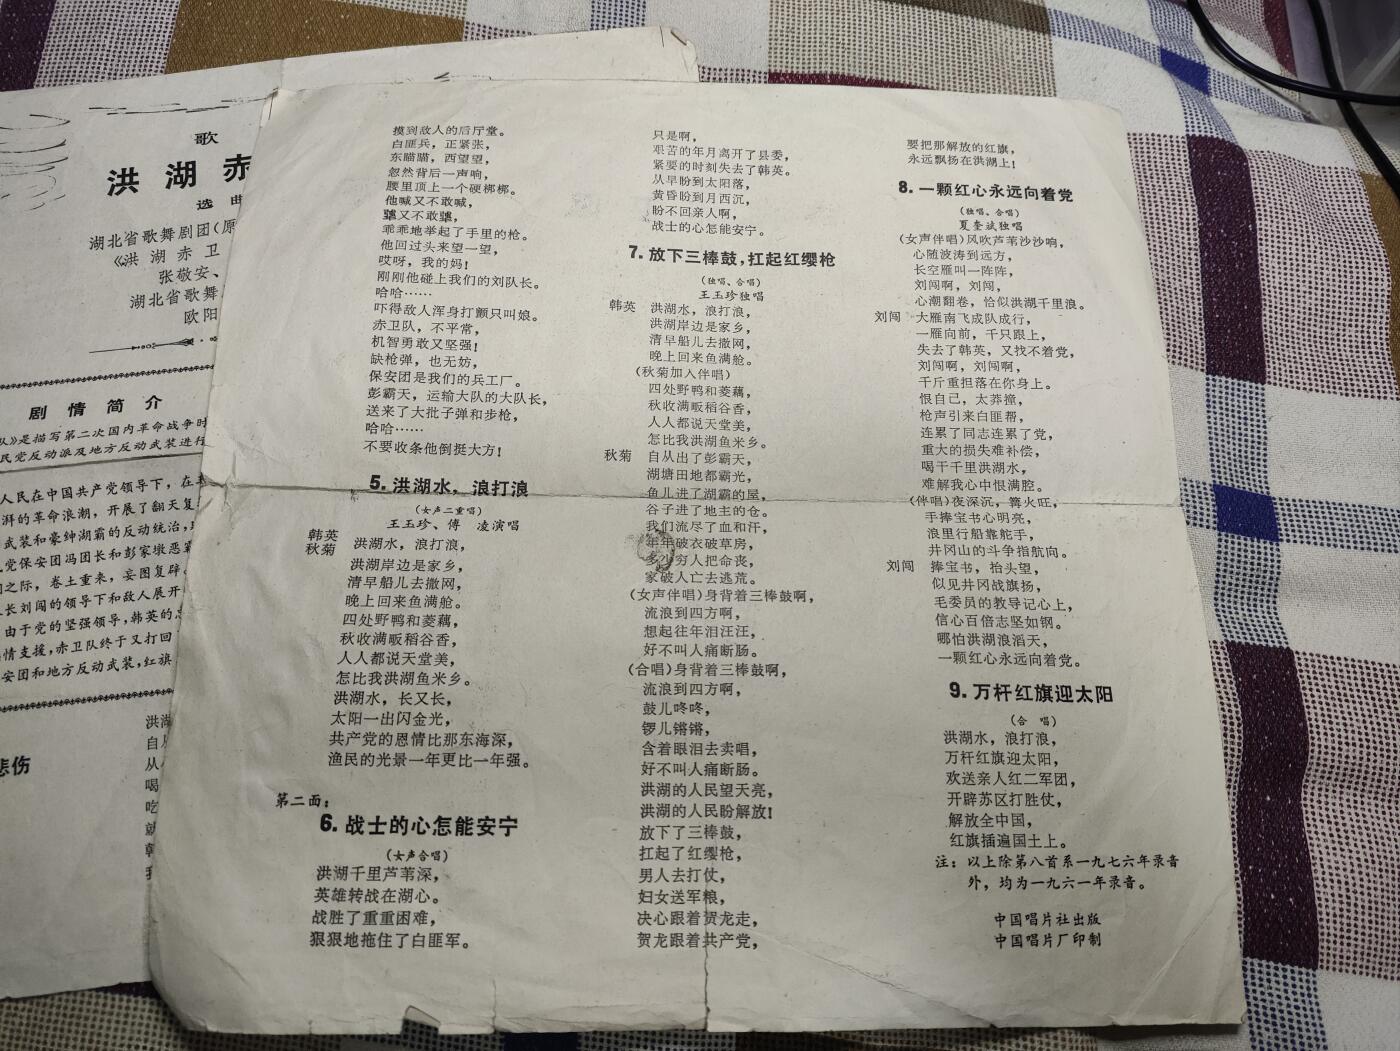 歌
洪湖赤
选曲
湖北省歌舞剧团(原
《洪湖赤卫
张敬安、
湖北省歌舞
欧阳
剧情简介
队》是描写第二次国内革命战争时
民党反动派及地方反动武装进行
人民在中国共产党领导下，在
湃的革命浪潮，开展了翻天复
武装和豪绅湖霸的反动统治，
党保安团冯团长和彭家墩恶霸
之际，卷土重来，妄图复辟。
长刘闯的领导下和敌人展开
由于党的坚强领导，韩英的
情支援，赤卫队终于又打回
安团和地方反动武装，红旗
悲伤
洪湖
自从
从
喝
吃
就
韩
摸到敌人的后厅堂。
白匪兵，正紧张，
东瞄瞄，西望望，
忽然背后一声响，
腰里顶上一个硬梆梆。
他喊又不敢喊，
犟又不敢犟，
乖乖地举起了手里的枪。
他回过头来望一望，
哎呀，我的妈！
刚刚他碰上我们的刘队长。
哈哈……
吓得敌人浑身打颤只叫娘。
赤卫队，不平常，
机智勇敢又坚强！
缺枪弹，也无妨，
保安团是我们的兵工厂。
彭霸天，运输大队的大队长，
送来了大批子弹和步枪，
哈哈……
不要收条他倒挺大方！
5. 洪湖水，浪打浪
(女声二重唱)
王玉珍、傅 凌演唱
韩英
秋菊
洪湖水，浪打浪，
洪湖岸边是家乡，
清早船儿去撒网，
晚上回来鱼满舱。
四处野鸭和菱藕，
秋收满畈稻谷香，
人人都说天堂美，
怎比我洪湖鱼米乡。
洪湖水，长又长，
太阳一出闪金光，
共产党的恩情比那东海深，
渔民的光景一年更比一年强。
第二面：
6. 战士的心怎能安宁
(女声合唱)
洪湖千里芦苇深，
英雄转战在湖心。
战胜了重重困难，
狠狠地拖住了白匪军。
只是啊，
艰苦的年月离开了县委，
紧要的时刻失去了韩英。
从早盼到太阳落，
黄昏盼到月西沉，
盼不回亲人啊，
战士的心怎能安宁。
7. 放下三棒鼓，扛起红缨枪
(独唱、合唱)
王玉珍独唱
韩英 洪湖水，浪打浪，
洪湖岸边是家乡，
清早船儿去撒网，
晚上回来鱼满舱。
(秋菊加入伴唱)
四处野鸭和菱藕，
秋收满畈稻谷香，
人人都说天堂美，
怎比我洪湖鱼米乡。
秋菊 自从出了彭霸天，
湖塘田地都霸光，
鱼儿进了湖霸的屋，
谷子进了地主的仓。
我们流尽了血和汗，
年年破衣破草房，
多少穷人把命丧，
家破人亡去逃荒。
(女声伴唱)身背着三棒鼓啊，
流浪到四方啊，
想起往年泪汪汪，
好不叫人痛断肠。
(合唱)身背着三棒鼓啊，
流浪到四方啊，
鼓儿咚咚，
锣儿锵锵，
含着眼泪去卖唱，
好不叫人痛断肠。
洪湖的人民望天亮，
洪湖的人民盼解放！
放下了三棒鼓，
扛起了红缨枪，
男人去打仗，
妇女送军粮，
决心跟着贺龙走，
贺龙跟着共产党，
要把那解放的红旗，
永远飘扬在洪湖上！
8. 一颗红心永远向着党
(独唱、合唱)
夏奎斌独唱
(女声伴唱)风吹芦苇沙沙响，
心随波涛到远方，
长空雁叫一阵阵，
刘闯啊，刘闯，
心潮翻卷，恰似洪湖千里浪。
刘闯 大雁南飞成队成行，
一雁向前，千只跟上，
失去了韩英，又找不着党，
刘闯啊，刘闯啊，
千斤重担落在你身上。
恨自己，太莽撞，
枪声引来白匪帮，
连累了同志连累了党，
重大的损失难补偿，
喝干千里洪湖水，
难解我心中恨满腔。
(伴唱)夜深沉，篝火旺，
手捧宝书心明亮，
浪里行船靠舵手，
井冈山的斗争指航向。
刘闯 捧宝书，抬头望，
似见井冈战旗扬，
毛委员的教导记心上，
信心百倍志坚如钢。
哪怕洪湖浪滔天，
一颗红心永远向着党。
9. 万杆红旗迎太阳
(合 唱)
洪湖水，浪打浪，
万杆红旗迎太阳，
欢送亲人红二军团，
开辟苏区打胜仗，
解放全中国，
红旗插遍国土上。
注：以上除第八首系一九七六年录音
外，均为一九六一年录音。
中国唱片社出版
中国唱片厂印制